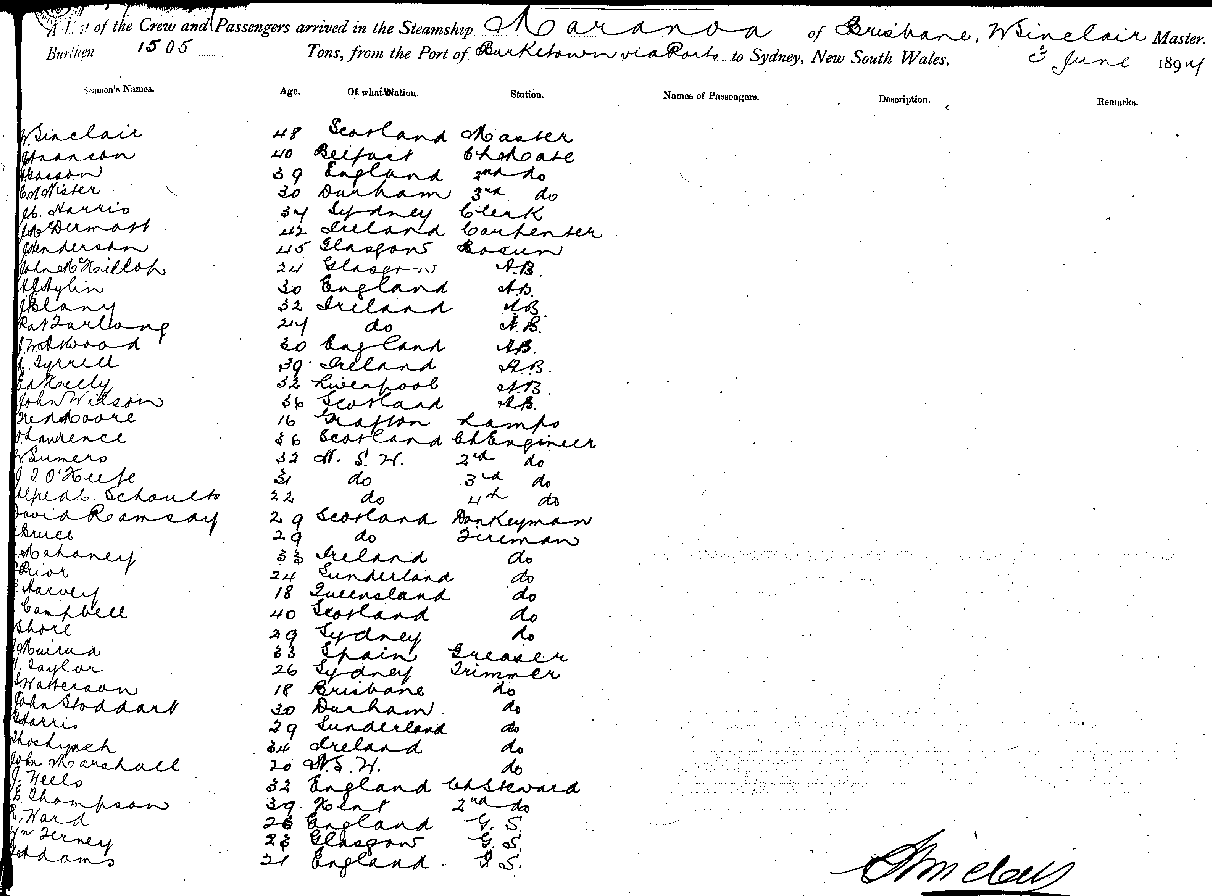 A List of the Crew and Passengers arrived in the Steamship Maranoa of Brisbane, W Sinclair Master.
Burthen 1505 Tons, from the Port of Burketown via Ports to Sydney, New South Wales, 3 June 1894
Seamen's Names. Age. Of what Nation. Station. Names of Passengers. Description. Remarks.
W Sinclair 48 Scotland Master
40 Belfast Ch Mate
39 England 2nd do
30 Durham 3rd do
Harris 34 Sydney Clerk
McDermott 42 Ireland Carpenter
Henderson 45 Glasgow Bosun
John McKillop 24 Glasgow A.B.
30 England A.B.
32 Ireland A.B.
Pat Furlong 24 do A.B.
30 England A.B.
Tyrrell 39 Ireland A.B.
32 Liverpool A.B.
John Wilson 36 Scotland A.B.
Fred Moore 16 Grafton Lamps
Lawrence 36 Scotland Ch Engineer
W Sumers 32 N. S. W. 2nd do
J J O'Keefe 31 do 3rd do
Alfred C. Schoults 22 do 4th do
David Ramsay 29 Scotland Donkeyman
Bruce 29 do Fireman
Mahaney 33 Ireland do
Prior 24 Sunderland do
Harvey 18 Queensland do
Campbell 40 Scotland do
Shore 29 Sydney do
33 Spain Greaser
Taylor 26 Sydney Trimmer
Watterson 18 Brisbane do
John Stoddart 30 Durham do
Harris 29 Sunderland do
34 Ireland do
John Marshall 20 N. S. W. do
J. Wells 32 England Ch Steward
Thompson 39 Kent 2nd do
Ward 26 England G. S.
Wm Terney 23 Glasgow G. S.
Addams 21 England G. S.
W Sinclair